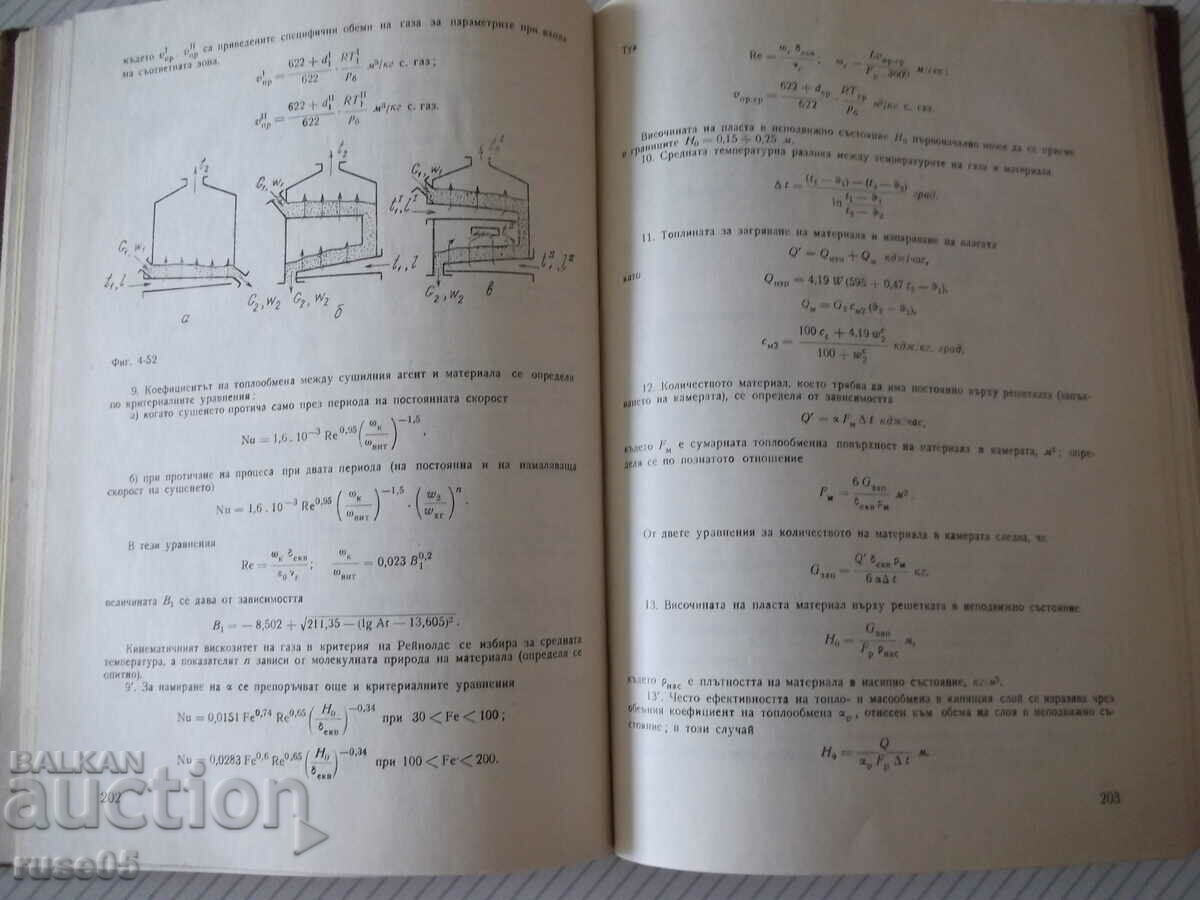 където v^I_пр, v^II_пр са приведените специфични обеми на газа за параметрите при входа
на съответната зона.
v^I_пр = (622 + d^I_1)/622 · RT^I_1/p_б м³/кг с. газ;
v^II_пр = (622 + d^II_1)/622 · RT^II_1/p_б м³/кг с. газ.
t₂
t₂
G₁, w₁
G₁, w₁
G₁, w₁
t₁, l
t₁, l
t₁^II, l^II
G₂, w₂
G₂, w₂
G₂, w₂
а
б
в
Фиг. 4-52
9. Коефициентът на топлообмена между сушилния агент и материала се определя
по критериалните уравнения:
а) когато сушенето протича само през периода на постоянната скорост
Nu = 1,6 . 10⁻³ Re^0,95 (ω_к/ω_вит)^−1,5 .
б) при протичане на процеса при двата периода (на постоянна и на намаляваща
скорост на сушенето)
Nu = 1,6 . 10⁻³ Re^0,95 (ω_к/ω_вит)^−1,5 · (w₂/w_кг)^n .
В тези уравнения
Re = ω_к δ_екв/ε₀ν_г ; ω_к/ω_вит = 0,023 B₁^0,2
величината B₁ се дава от зависимостта
B₁ = − 8,502 + √211,35 − (lg Ar − 13,605)² .
Кинематичният вискозитет на газа в критерия на Рейнолдс се избира за средната
температура, а показателят n зависи от молекулната природа на материала (определя се
опитно).
9′. За намиране на α се препоръчват още и критериалните уравнения
Nu = 0,0151 Fe^0,74 Re^0,65 (H₀/δ_екв)^−0,34 при 30 < Fe < 100;
Nu = 0,0283 Fe^0,6 Re^0,65 (H₀/δ_екв)^−0,34 при 100 < Fe < 200.
202
Тук
Re = ω_к δ_екв/ν_г ;
v_пр.ср = (622 + d_ср)/622 · RT_ср/p_б м³/кг с. газ.
Височината на пласта в неподвижно състояние H₀ първоначално може да се приеме
в границите H₀ = 0,15 ÷ 0,25 м.
10. Средната температурна разлика между температурите на газа и материала
Δt = ((t₁ − ϑ₁) − (t₂ − ϑ₂))/(ln (t₁ − ϑ₁)/(t₂ − ϑ₂)) град.
11. Топлината за загряване на материала и изпаряване на влагата
Q′ = Q_изп + Q_м кдж/час,
като
Q_изп = 4,19 W (595 + 0,47 t₂ − ϑ₁),
Q_м = G₂ c_м2 (ϑ₂ − ϑ₁),
c_м2 = (100 c_с + 4,19 w₂^c)/(100 + w₂^c) кдж/кг. град.
12. Количеството материал, което трябва да има постоянно върху решетката (запъл-
ването на камерата), се определя от зависимостта
Q′ = α F_м Δt кдж/час,
където F_м е сумарната топлообменна повърхност на материала в камерата, м²; опре-
деля се по познатото отношение
F_м = 6 G_зап/δ_екв ρ_м м².
От двете уравнения за количеството на материала в камерата следва, че
G_зап = Q′ δ_екв ρ_м/6 α Δt кг.
13. Височината на пласта материал върху решетката в неподвижно състояние
H₀ = G_зап/F_р ρ_нас м,
където ρ_нас е плътността на материала в насипно състояние, кг/м³.
13′. Често ефективността на топло- и масообмена в кипящия слой се изразява чрез
обемния коефициент на топлообмена α_v, отнесен към обема на слоя в неподвижно съ-
стояние; в този случай
H₀ = Q/α_v F_р Δt м.
203
BALKAN
auction
ruse05